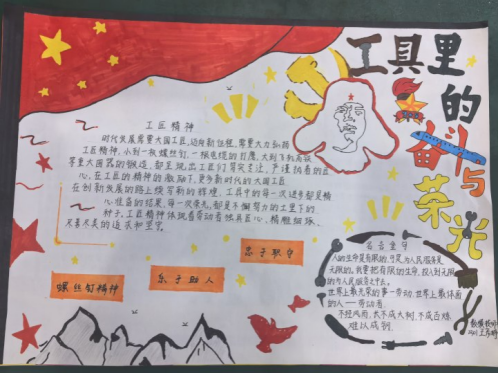 工具里
的
奋斗
与
荣光
工匠精神
时代发展需要大国工匠,迈向新征程,需要大力弘扬
工匠精神,小到一枚螺丝钉、一根电缆的打磨,大到飞机、高铁
等重大国器的锻造,都呈现出工匠们笃定专注、严谨执着的匠
心,在工匠的精神的激励下,更多新时代的大国工匠
在创新发展的路上续写新的辉煌,工具中的每一次进步都是精
心准备的结果,每一次荣光,都是不懈努力的工匠下的
种子,工匠精神体现着劳动者独具匠心、精雕细琢、
尽善尽美的追求和坚守。
螺丝钉精神
乐于助人
忠于职守
名言坚守
人的生命是有限的,可是,为人民服务是
无限的,我要把有限的生命,投入到无限
的为人民服务之中去。
世界上最光荣的事—劳动,世界上最体面
的人——劳动者
不经风雨,长不成大树,不成百炼
难以成钢.